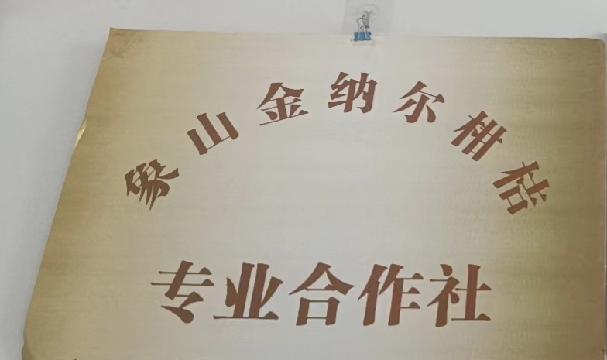 象山金纳尔柑桔
专业合作社